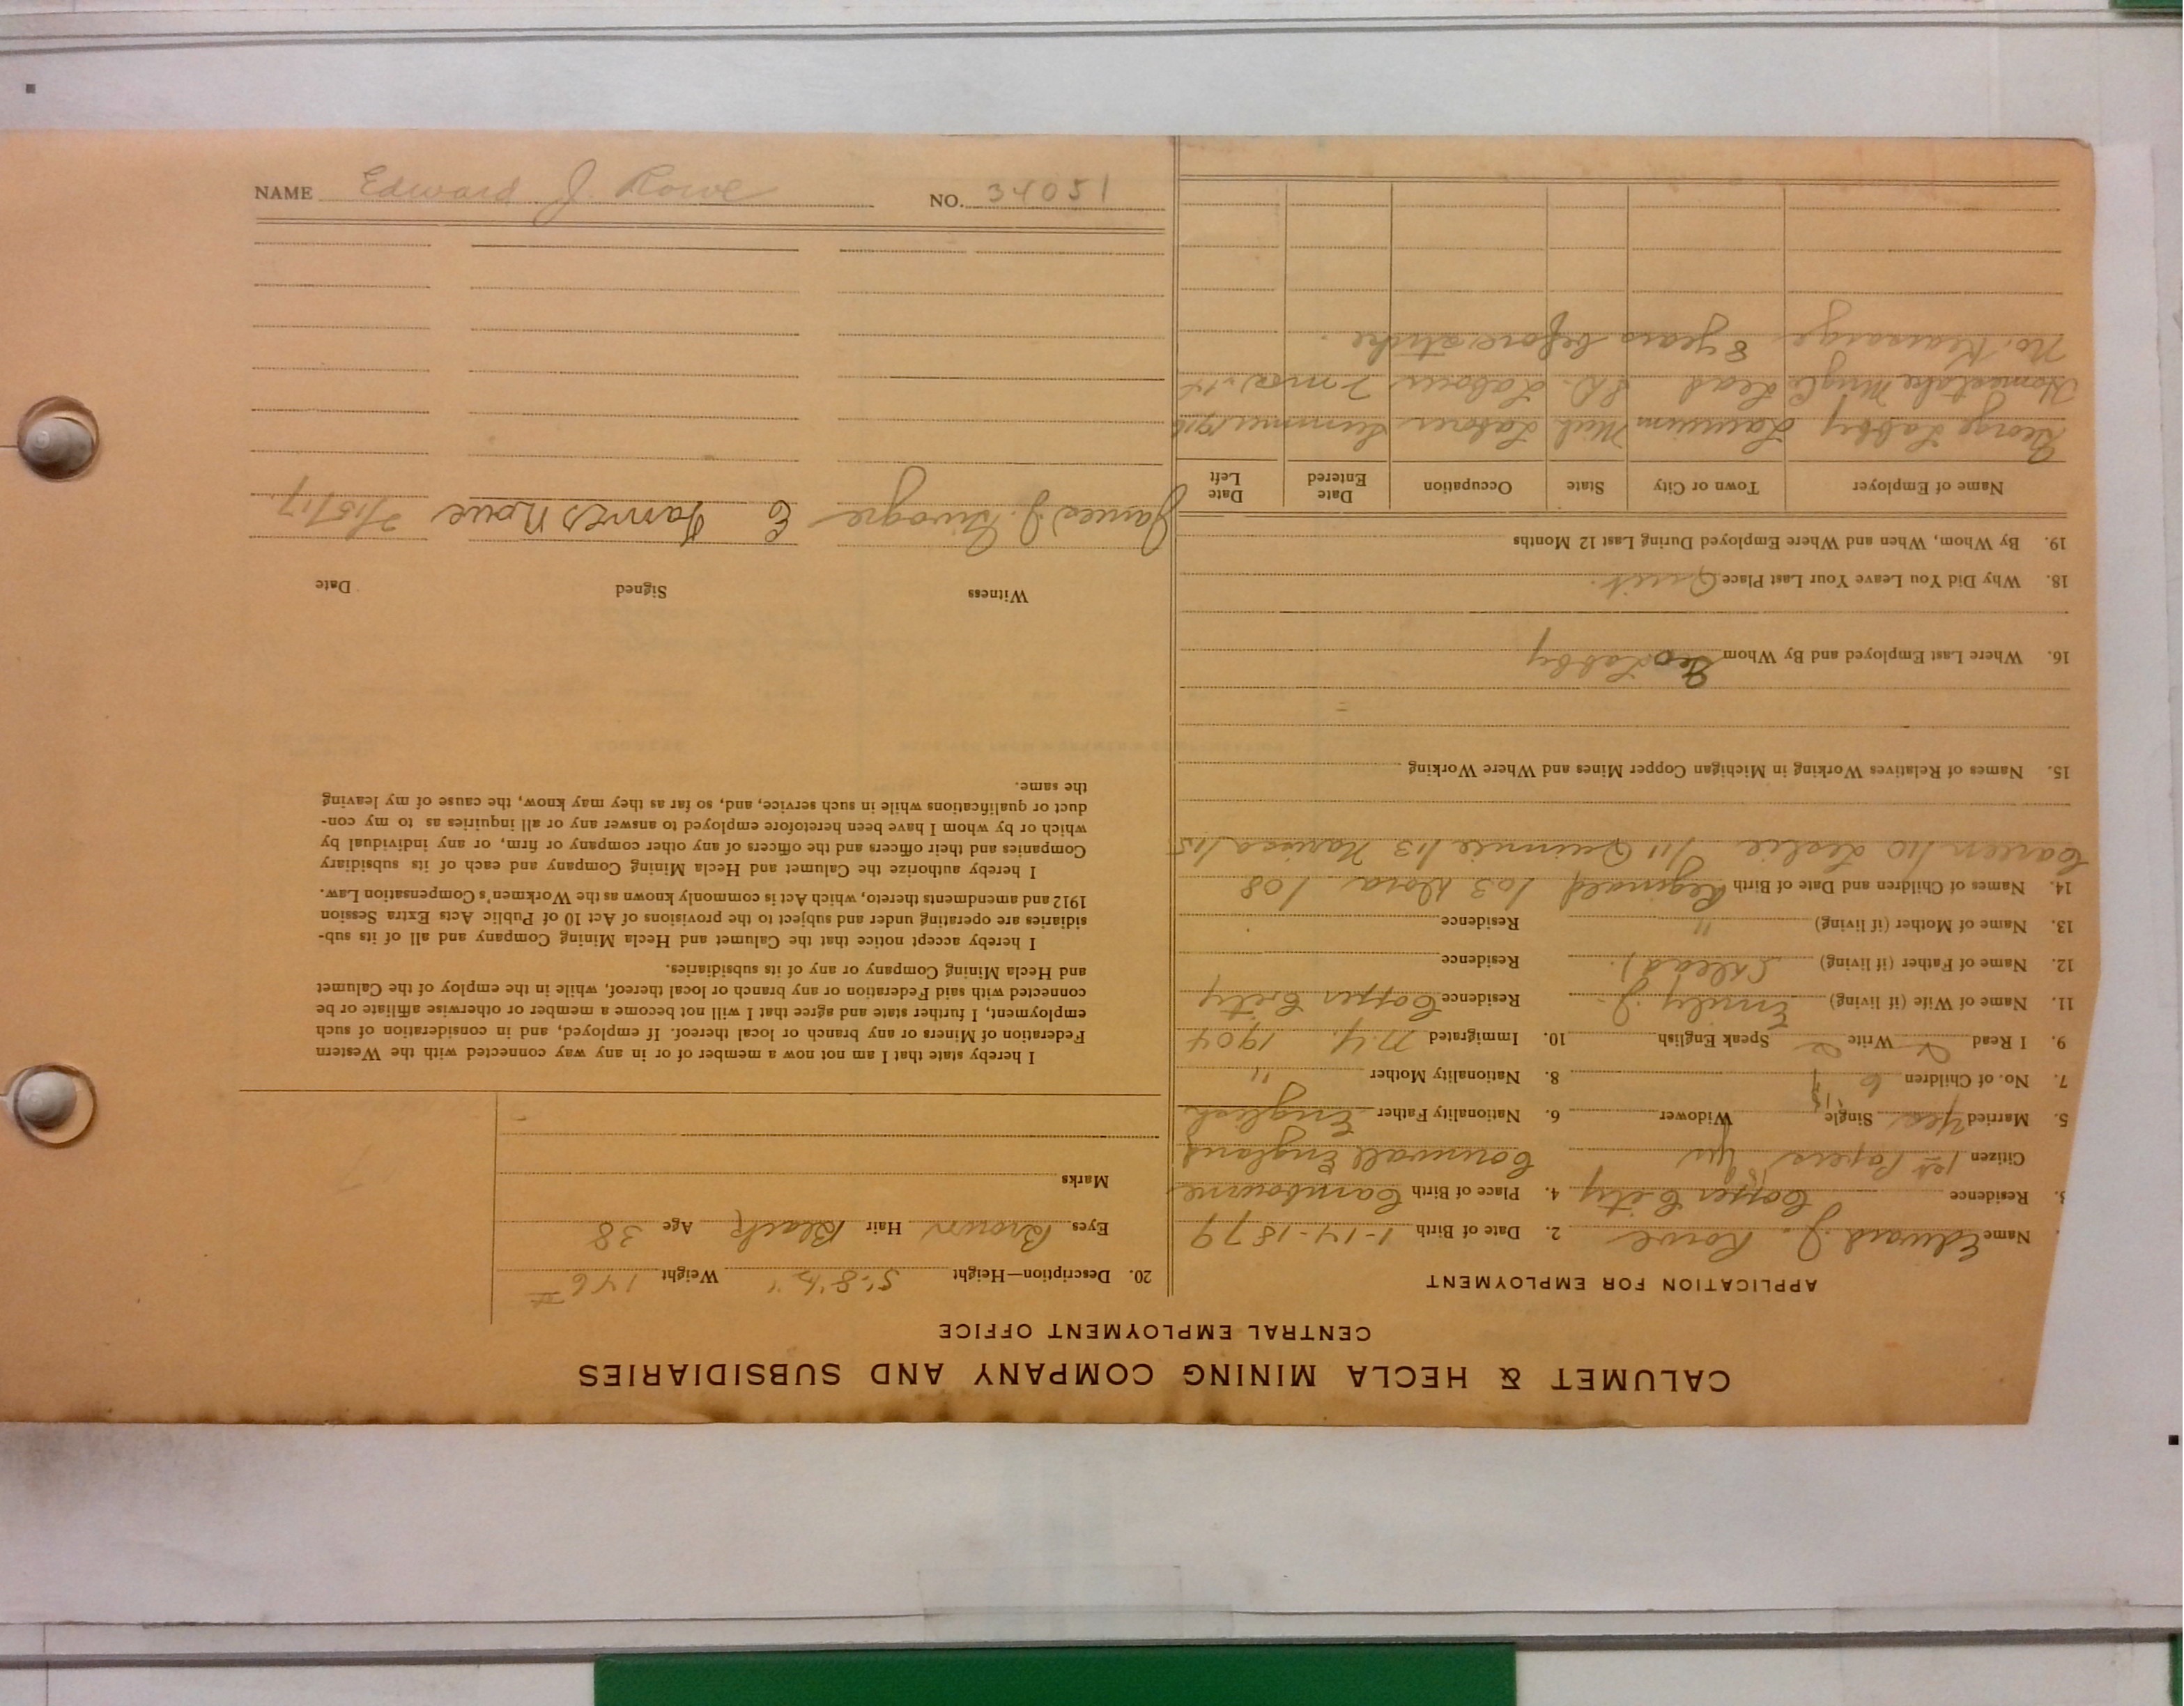 CALUMET & HECLA MINING COMPANY AND SUBSIDIARIES
CENTRAL EMPLOYMENT OFFICE
APPLICATION FOR EMPLOYMENT
Name Edward J. Rowe 2. Date of Birth 1-14-1879
3. Residence Copper City 4. Place of Birth Cambourne
Citizen 1st Papers yes Cornwall England
5. Married Yes Single Widower 6. Nationality Father English
7. No. of Children 6 8. Nationality Mother "
9. I Read Write Speak English 10. Immigrated N.Y. 1904
11. Name of Wife (if living) Emily J. Residence Copper City
12. Name of Father (if living) (Dead) Residence
13. Name of Mother (if living) " Residence
14. Names of Children and Date of Birth Reginald /03 Dora /08
/10 Leslie /11 /13 /15
15. Names of Relatives Working in Michigan Copper Mines and Where Working
16. Where Last Employed and By Whom Geo Labby
18. Why Did You Leave Your Last Place Quit.
19. By Whom, When and Where Employed During Last 12 Months
Name of Employer Town or City State Occupation Date Entered Date Left
George Labby Laurium Mich Laborer Summer 1916
Homestake Mng Co Lead S.D. Laborer 7 mos.
No. Kearsarge 8 years before strike.
20. Description—Height 5'-8½" Weight 146 #
Eyes Brown Hair Black Age 38
Marks
I hereby state that I am not now a member of or in any way connected with the Western
Federation of Miners or any branch or local thereof. If employed, and in consideration of such
employment, I further state and agree that I will not become a member or otherwise affiliate or be
connected with said Federation or any branch or local thereof, while in the employ of the Calumet
and Hecla Mining Company or any of its subsidiaries.
I hereby accept notice that the Calumet and Hecla Mining Company and all of its sub-
sidiaries are operating under and subject to the provisions of Act 10 of Public Acts Extra Session
1912 and amendments thereto, which Act is commonly known as the Workmen's Compensation Law.
I hereby authorize the Calumet and Hecla Mining Company and each of its subsidiary
Companies and their officers and the officers of any other company or firm, or any individual by
which or by whom I have been heretofore employed to answer any or all inquiries as to my con-
duct or qualifications while in such service, and, so far as they may know, the cause of my leaving
the same.
Witness Signed Date
James J. E James Rowe 2/15/17
NAME Edward J. Rowe NO. 34051